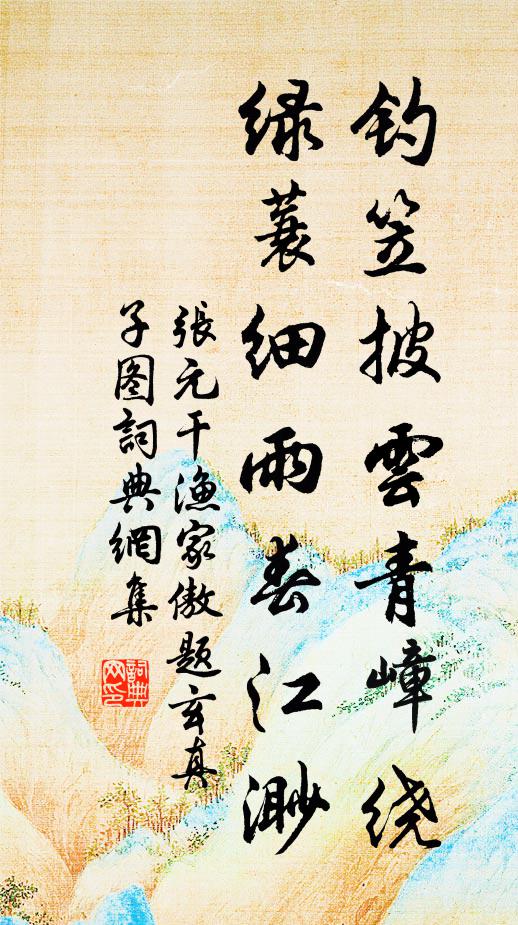 钓笠披雲青嶂绕
绿蓑细雨春江渺
張元干漁家傲题玄真
子图詞典網集
詞典网印